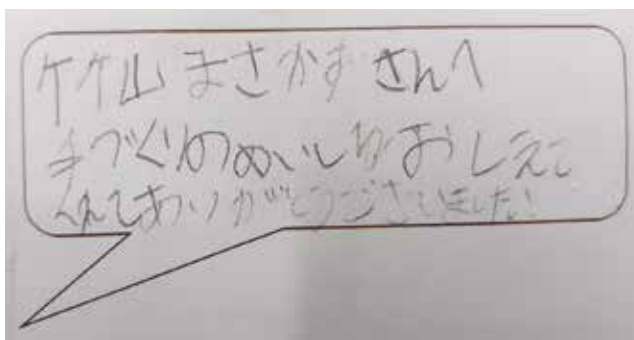 竹山 まさかずさんへ
手づくりのめいしをおしえて
くれてありがとうございました!